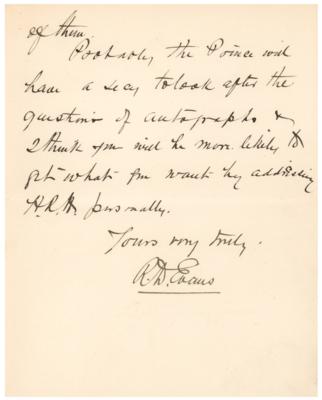 of them.
Probably the Prince will
have a secy to look after the
question of autographs &
I think you will be more likely to
get what you want by addressing
H.R.H. personally.
Yours very truly.
R.D. Evans